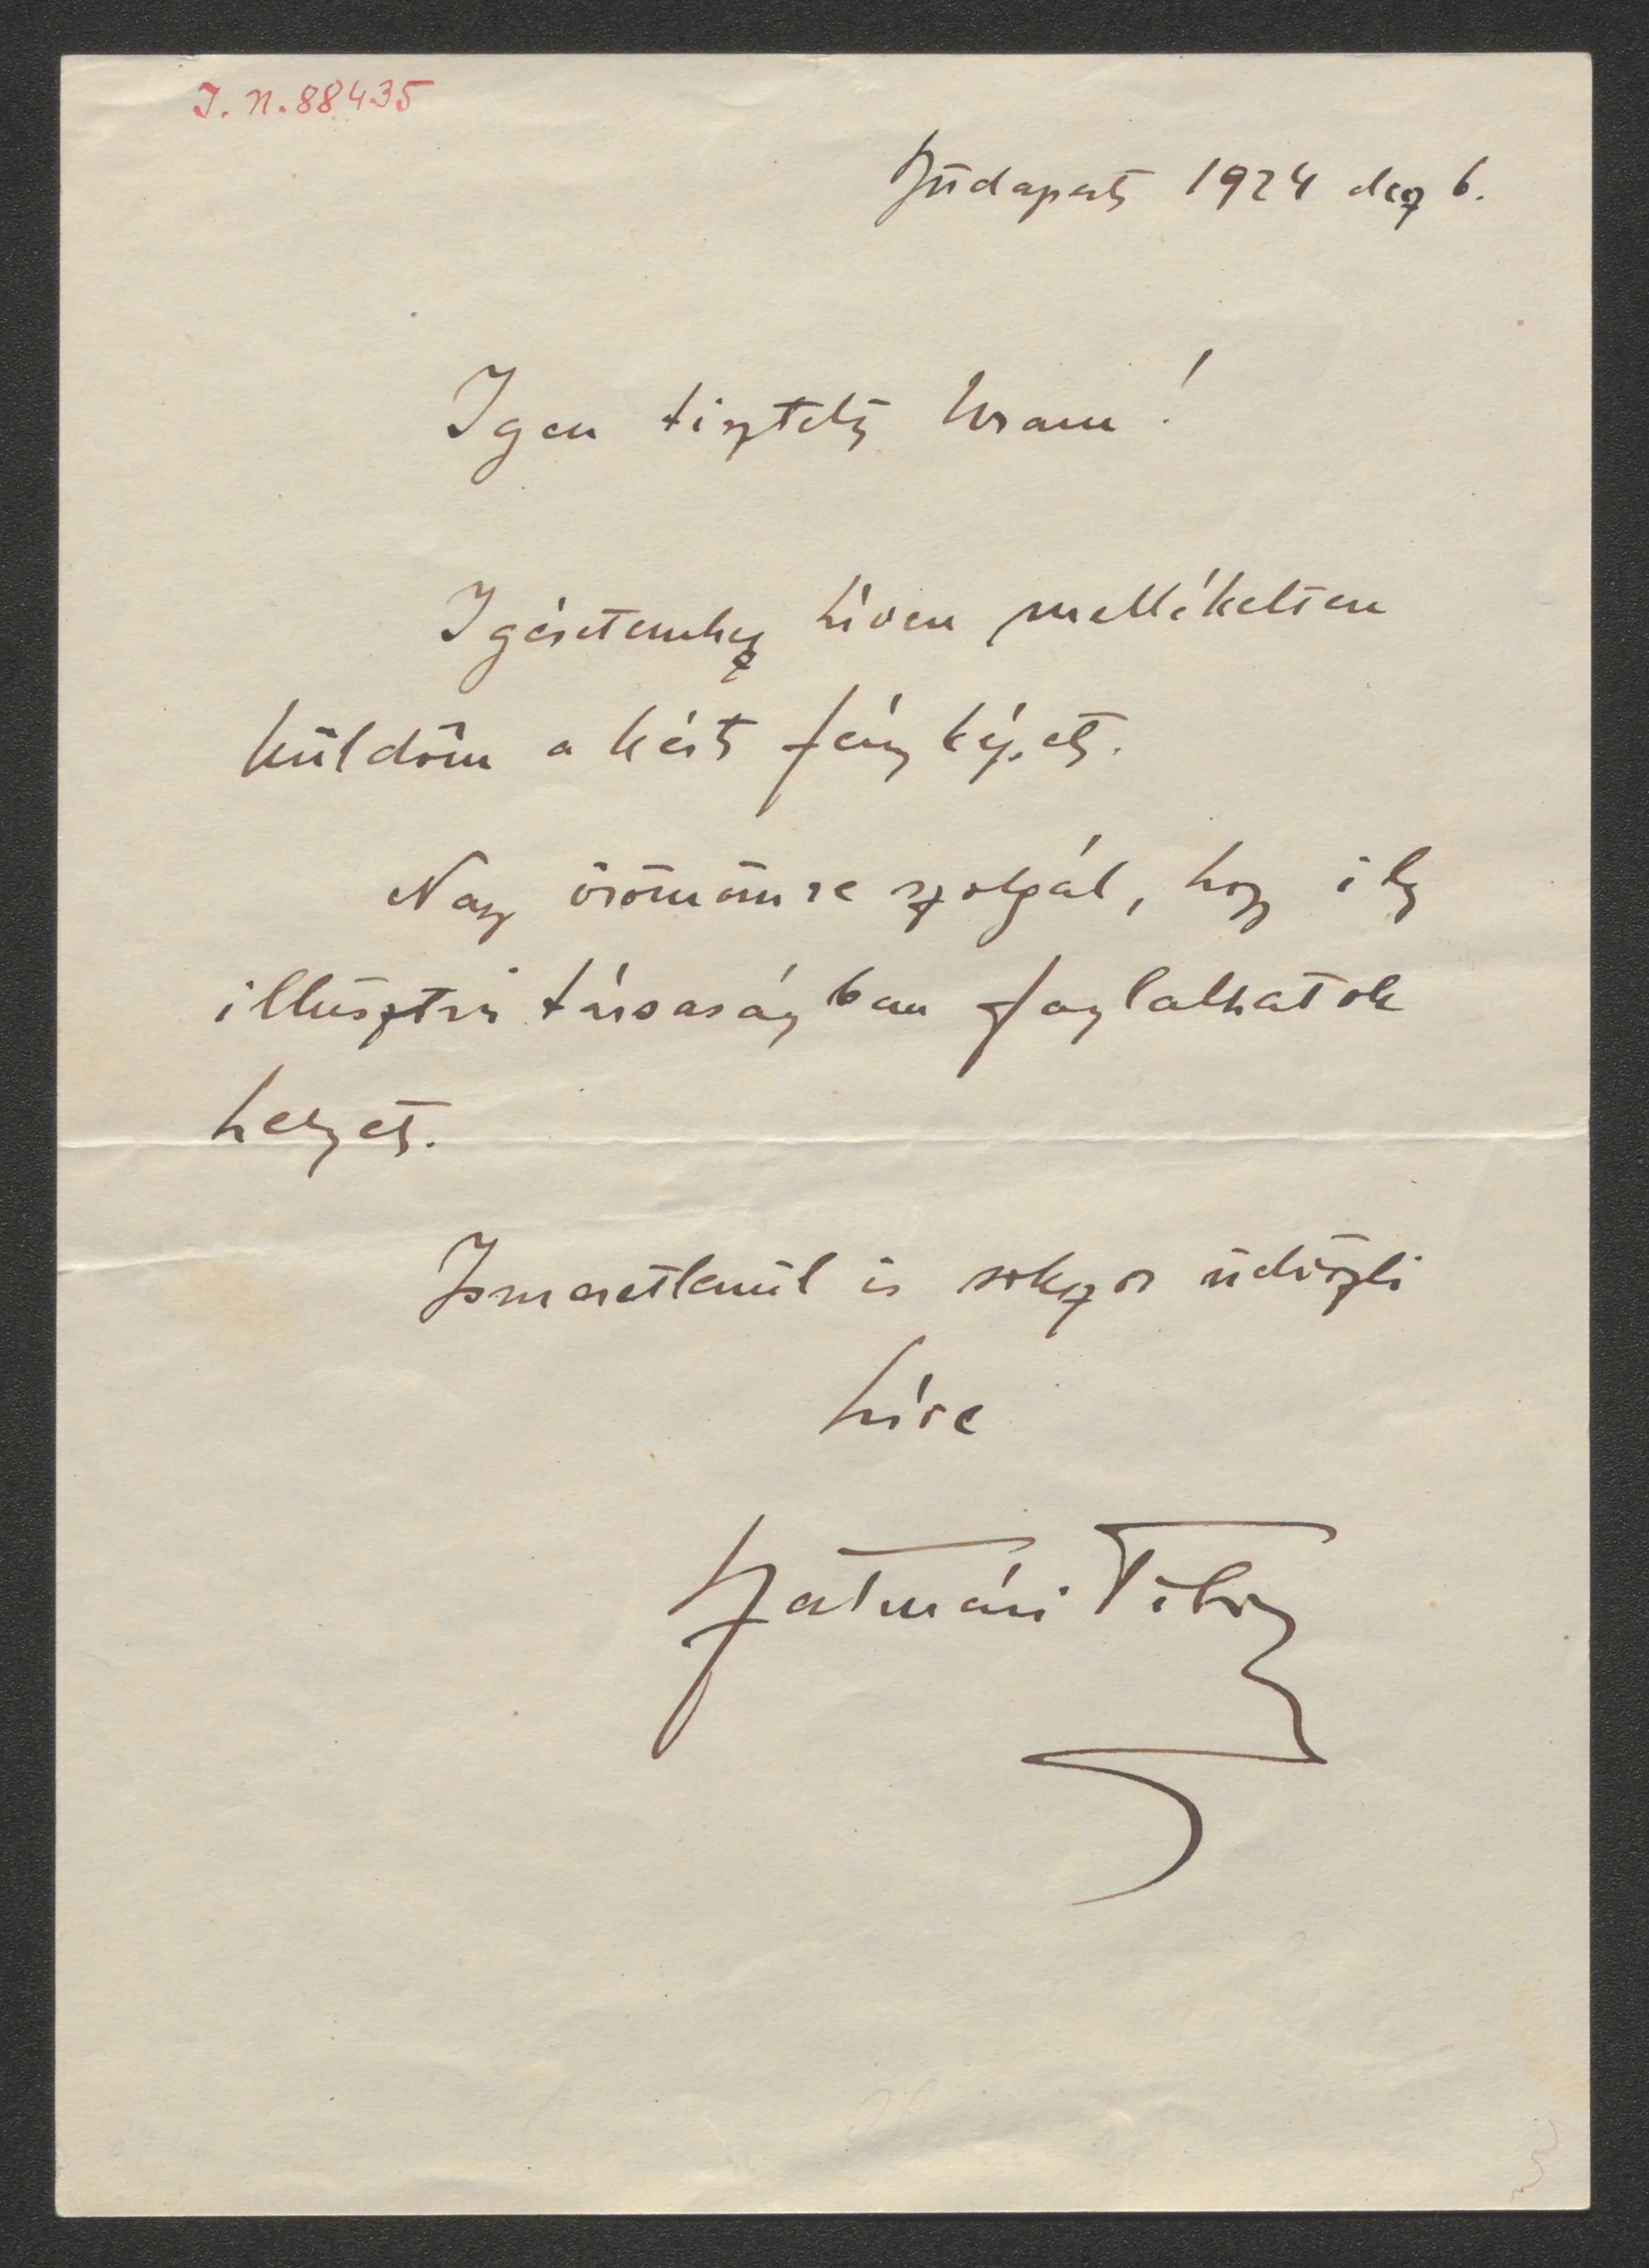 I. N. 88435
Budapest 1924 dez 6.
Igen tisztelt Uram!
Igéretemhez híven mellékelten
küldöm a kért fényképet.
Nagy örömömre szolgál, hogy ily
illusztris társaságban foglalhatok
helyet.
Ismeretlenül is sokszor üdvözli
híve
Szatmári Tibor